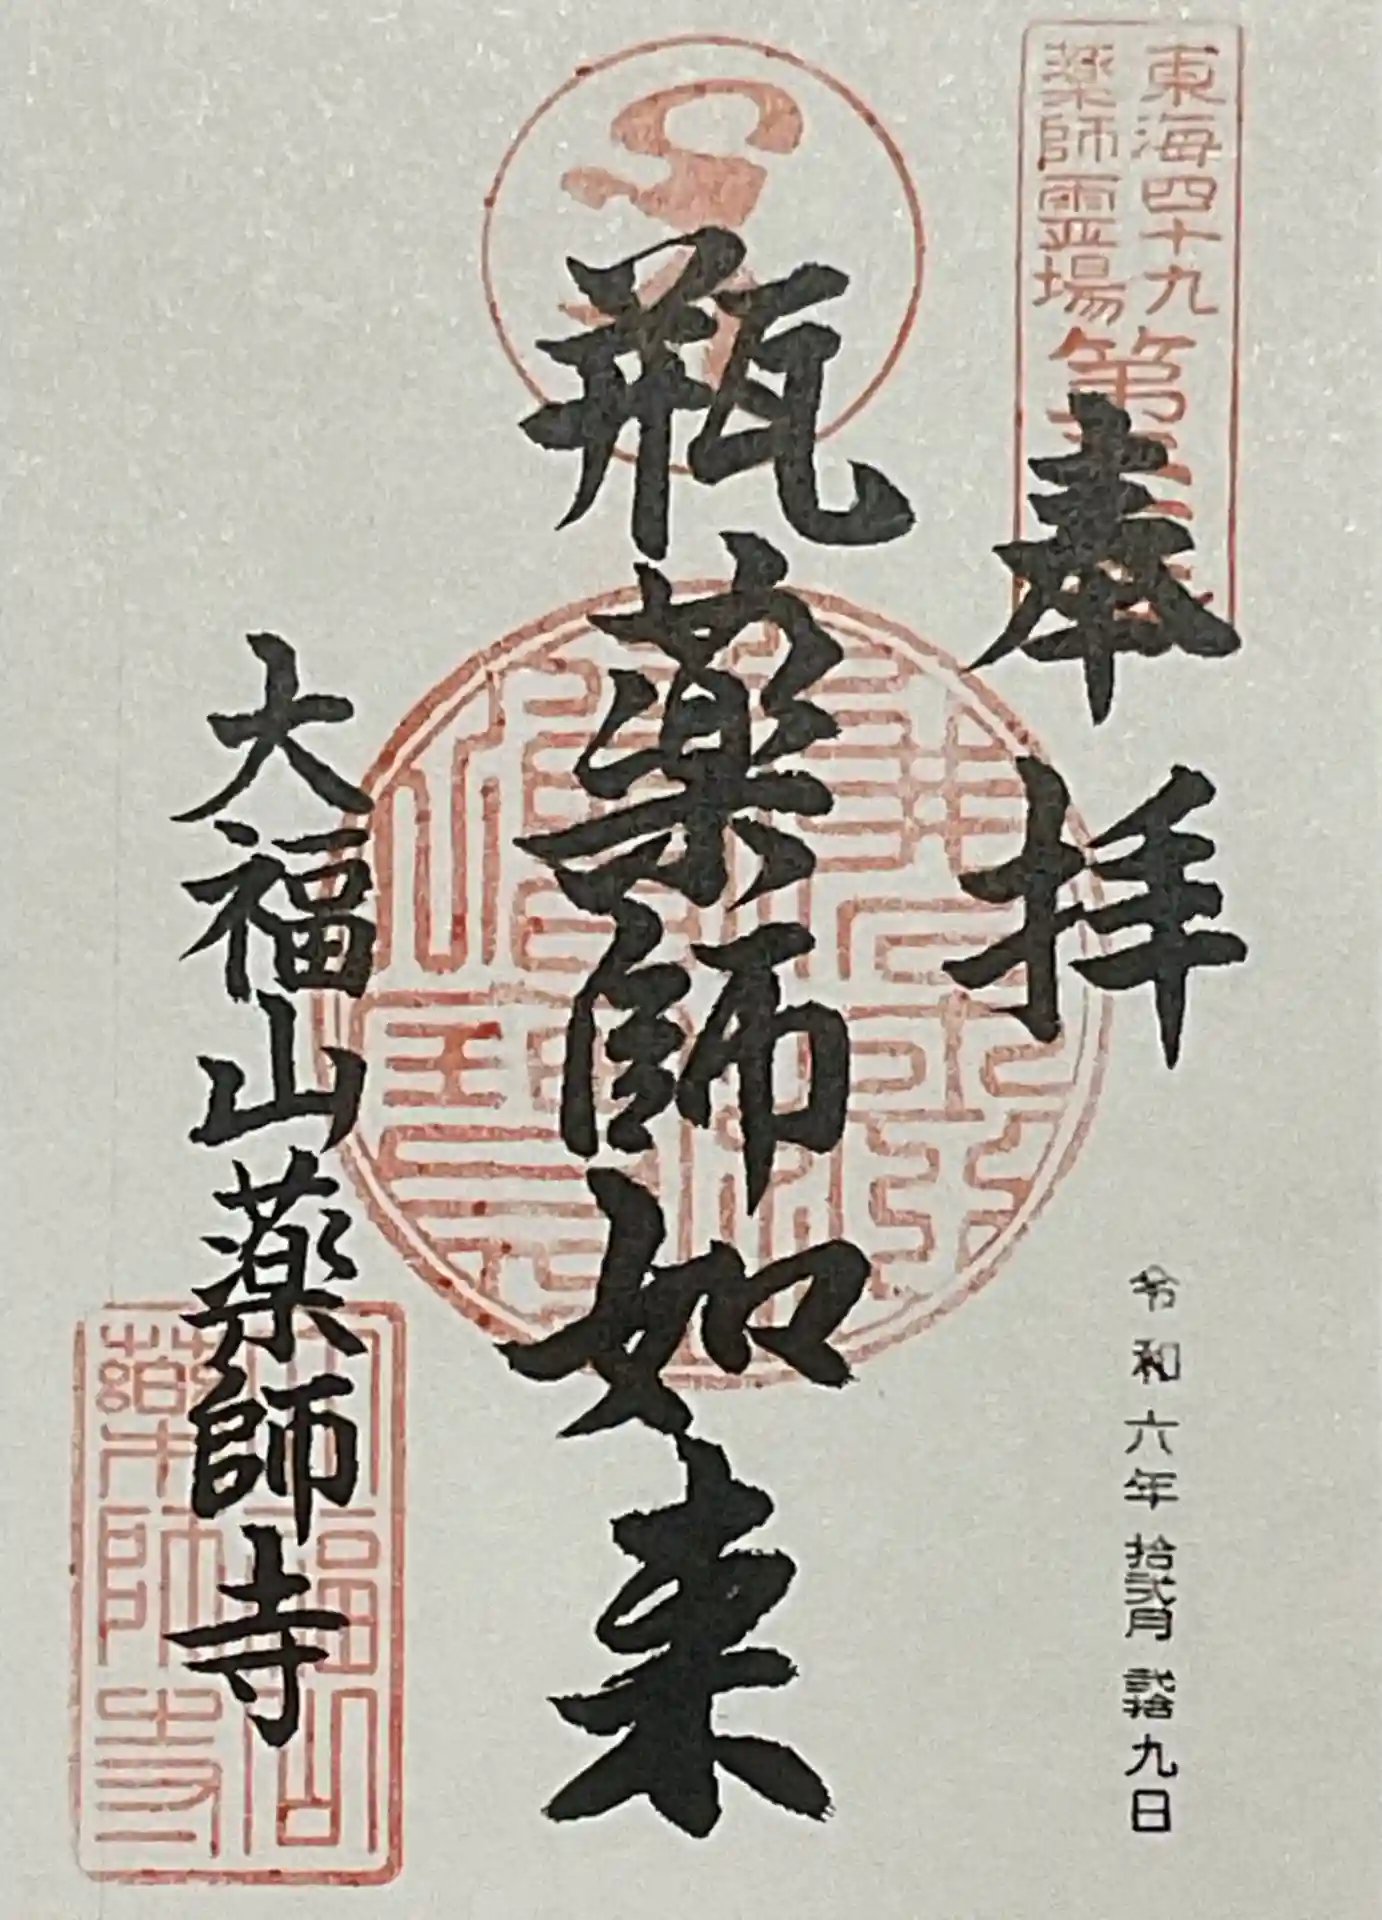 東海四十九
薬師霊場第
奉拝
令和六年拾弐月弐拾九日
瓶薬師如来
大福山薬師寺
大福山
薬師寺